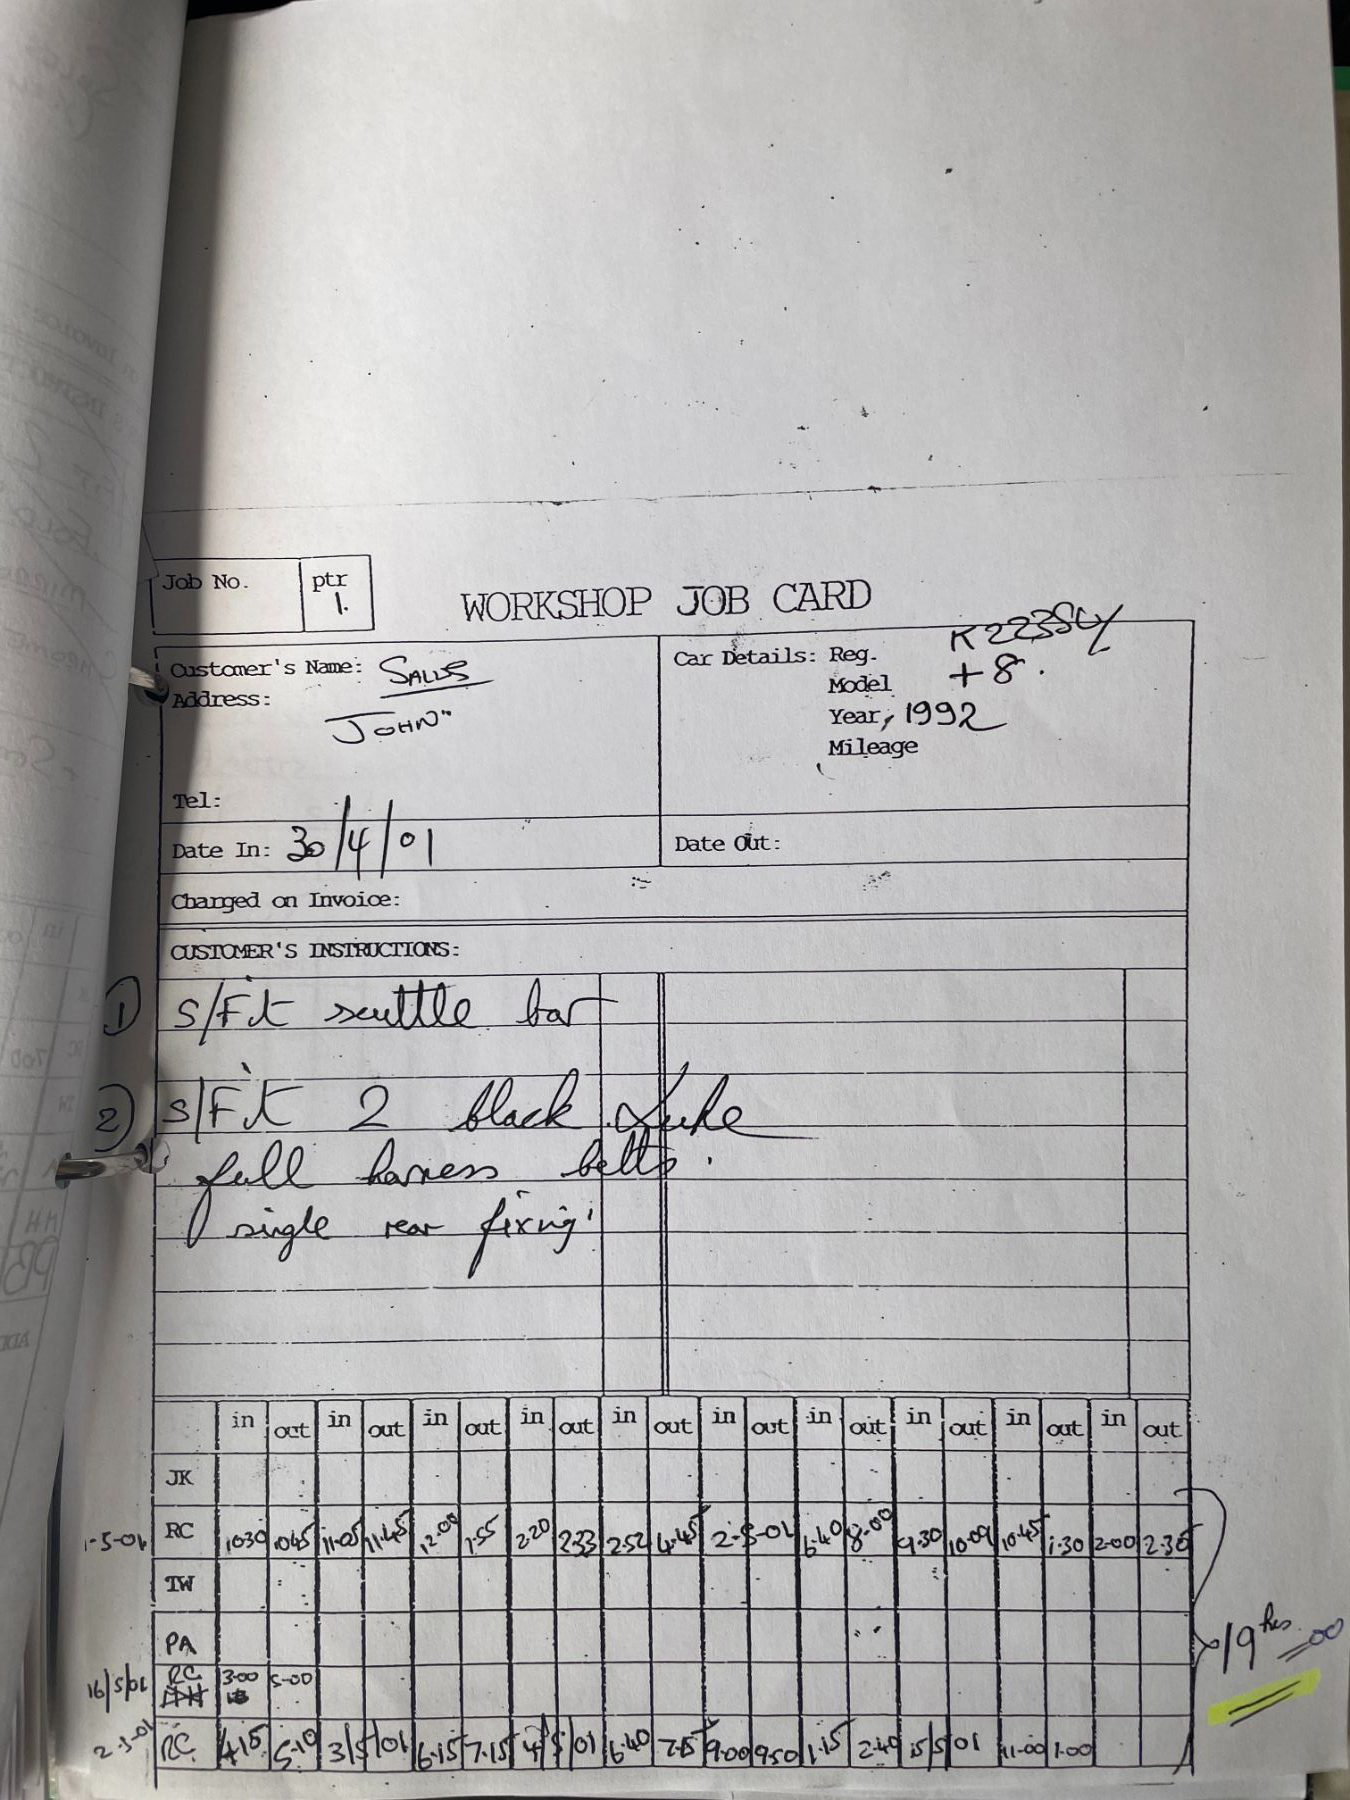 Job No. ptr 1.
WORKSHOP JOB CARD
Customer's Name: SALES
Address: JOHN"
Tel:
Car Details: Reg.
Model +8.
Year, 1992
Mileage
Date In: 30/4/01
Date Out:
Changed on Invoice:
CUSTOMER'S INSTRUCTIONS:
1 S/Fit scuttle bar
2 S/Fit 2 black Luke
full harness belts.
single rear fixing'
in out in out in out in out in out in out in out in out in out in out
JK
1-5-01 RC 1030 1045 11.05 11.45 12.00 1.55 2.20 2.33 2.52 4.45 2-5-01 6.40 8.00 9.30 10.09 10.45 1.30 2.00 2.36
TW
PA
16/5/01 RC 3.00 5-00
RC. 4.15 5.10 3/5/01 6.15 7.15 4/5/01 6.40 7.15 9.00 9.50 1.15 2.40 15/5/01 11-00 1.00
19 hrs 00